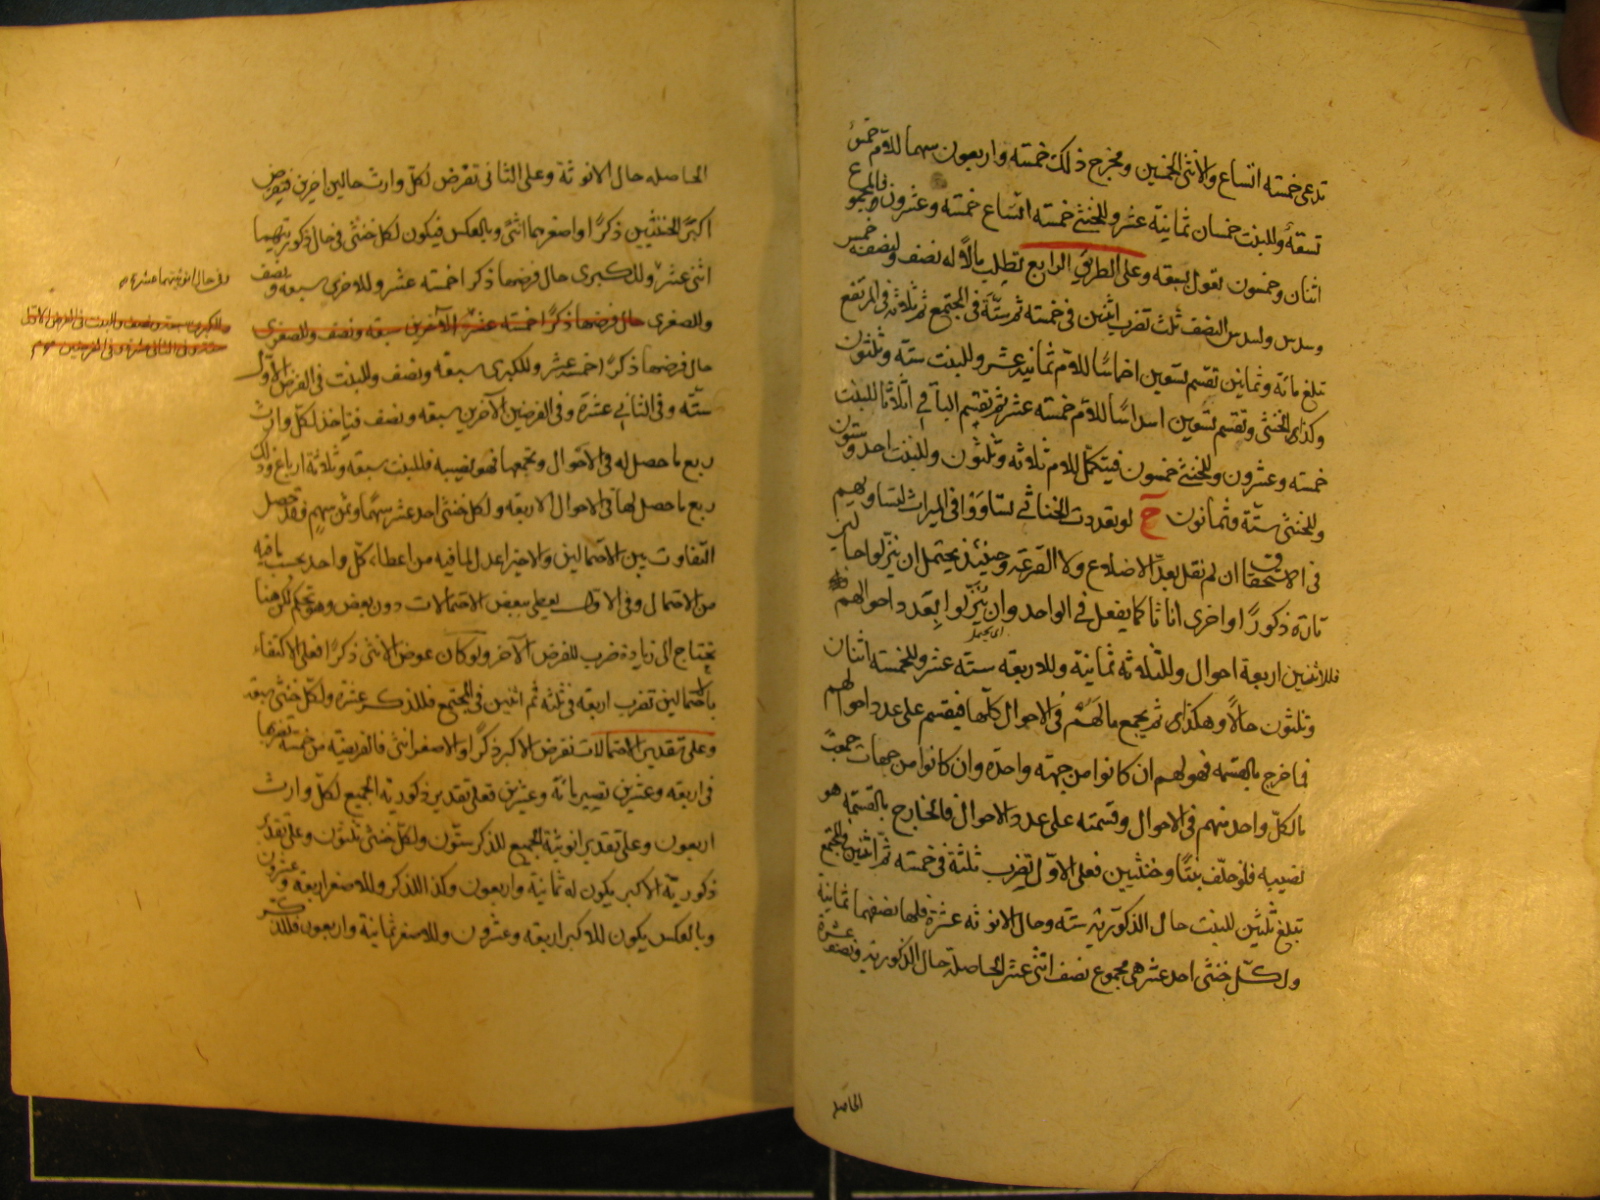 تدعى خمسة اتساع والانثى الخمسين ومخرج ذلك خمسة واربعون سهما للام خمس
تسعة وللبنت خمسان ثمانية عشر وللخنثى خمسة اتساع خمسة وعشرون فالمجموع
اثنان وخمسون تعول بسبعة وعلى الطريق الرابع تطلب مالا له نصف ولنصفه خمس
وسدس ولسدس النصف ثلث تضرب اثنين في خمسة ثم ستة في المجتمع ثم ثلاثة في المرتفع
تبلغ مائة وثمانين تقسم تسعين اخماسا للام ثمانية عشر وللبنت ستة وثلثون
وكذا الخنثى وتقسم تسعين اسداسا للام خمسة عشر ثم تقسم الباقي اثلاثا للبنت
خمسة وعشرون وللخنثى خمسون فيتكمل للام ثلاثة وثلثون وللبنت احد وستون
وللخنثى ستة وثمانون ح لو تعددت الخناثى تساووا في الميراث لتساويهم
في الاستحقاق ان لم نقل بعد الاضلاع ولا القرعة وحينئذ يحتمل ان ينزلوا حالين
تارة ذكورا واخرى اناثا كما يفعل في الواحد وان ينزلوا بعدد احوالهم
اى يحتمل
فللاثنين اربعة احوال وللثلاثة ثمانية وللاربعة ستة عشر وللخمسة اثنان
وثلثون حالا وهكذا ثم يجمع مالهم في الاحوال كلها فيقسم على عدد احوالهم
فما خرج بالقسمة فهو لهم ان كانوا من جهة واحدة وان كانوا من جهات جمعت
مالكل واحد منهم في الاحوال وقسمته على عدد الاحوال فالخارج بالقسمة هو
نصيبه فلو خلف بنتا وخنثيين فعلى الاول تضرب ثلثة في خمسة ثم اثنين في المجتمع
تبلغ ثلثين للبنت حال الذكورية ستة وحال الانوثة عشرة فلها نصفهما ثمانية
ولكل خنثى احد عشر هي مجموع نصف اثنى عشر الحاصلة حال الذكورية ونصف عشرة
الحاصلة
الحاصلة حال الانوثة وعلى الثانى تفرض لكل وارث حالين اخرين فتفرض
اكبر الخنثيين ذكرا واصغرهما انثى وبالعكس فيكون لكل خنثى في حال ذكوريتهما
اثنى عشر وللكبرى حال فرضها ذكرا خمسة عشر وللاخرى سبعة ونصف
وفي حال انوثيتهما عشرة
وللصغرى حال فرضها ذكرا خمسة عشر وللآخرين سبعة ونصف وللصغرى
حال فرضها ذكرا خمسة عشر وللكبرى سبعة ونصف وللبنت في الفرض الاول
ستة وفي الثاني عشرة وفي الفرضين الآخرين سبعة ونصف فتاخذ لكل وارث
ربع ما حصل له في الاحوال وتجمعها فهو نصيبه فللبنت سبعة وثلاثة ارباع وذلك
ربع ما حصل لها في الاحوال الاربعة ولكل خنثى احد عشر سهما وثمن سهم فقد حصل
التفاوت بين الاحتمالين والاخير اعدل لما فيه من اعطاء كل واحد بحسب ما فيه
من الاحتمال وفي الاول يعطى ببعض الاحتمالات دون بعض وهو تحكم لكن هنا
تحتاج الى زيادة ضرب للفرض الآخر ولو كان عوض الانثى ذكرا فعلى الاكتفاء
باحتمالين تضرب اربعة في ثلثة ثم اثنين في المجتمع فللذكر عشرة ولكل خنثى سبعة
وعلى تقدير الاحتمالات نفرض الاكبر ذكرا والاصغر انثى فالفريضة من خمسة تضربها
في اربعة وعشرين تصير مائة وعشرين فعلى تقدير ذكورية الجميع لكل وارث
اربعون وعلى تقدير انوثية الجميع للذكر ستون ولكل خنثى ثلثون وعلى تقدير
ذكورية الاكبر يكون له ثمانية واربعون وكذا للذكر وللاصغر اربعة وعشرون
وبالعكس يكون للاكبر اربعة وعشرون وللاصغر ثمانية واربعون فللذكر